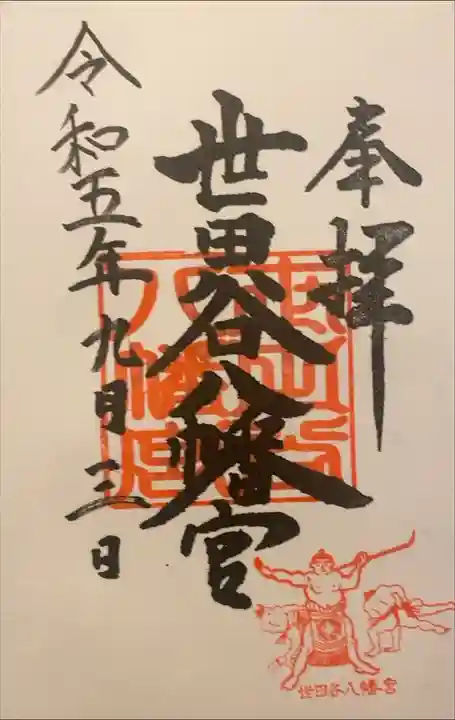 奉拝
世田谷八幡宮
令和五年九月三日
世田谷八幡宮